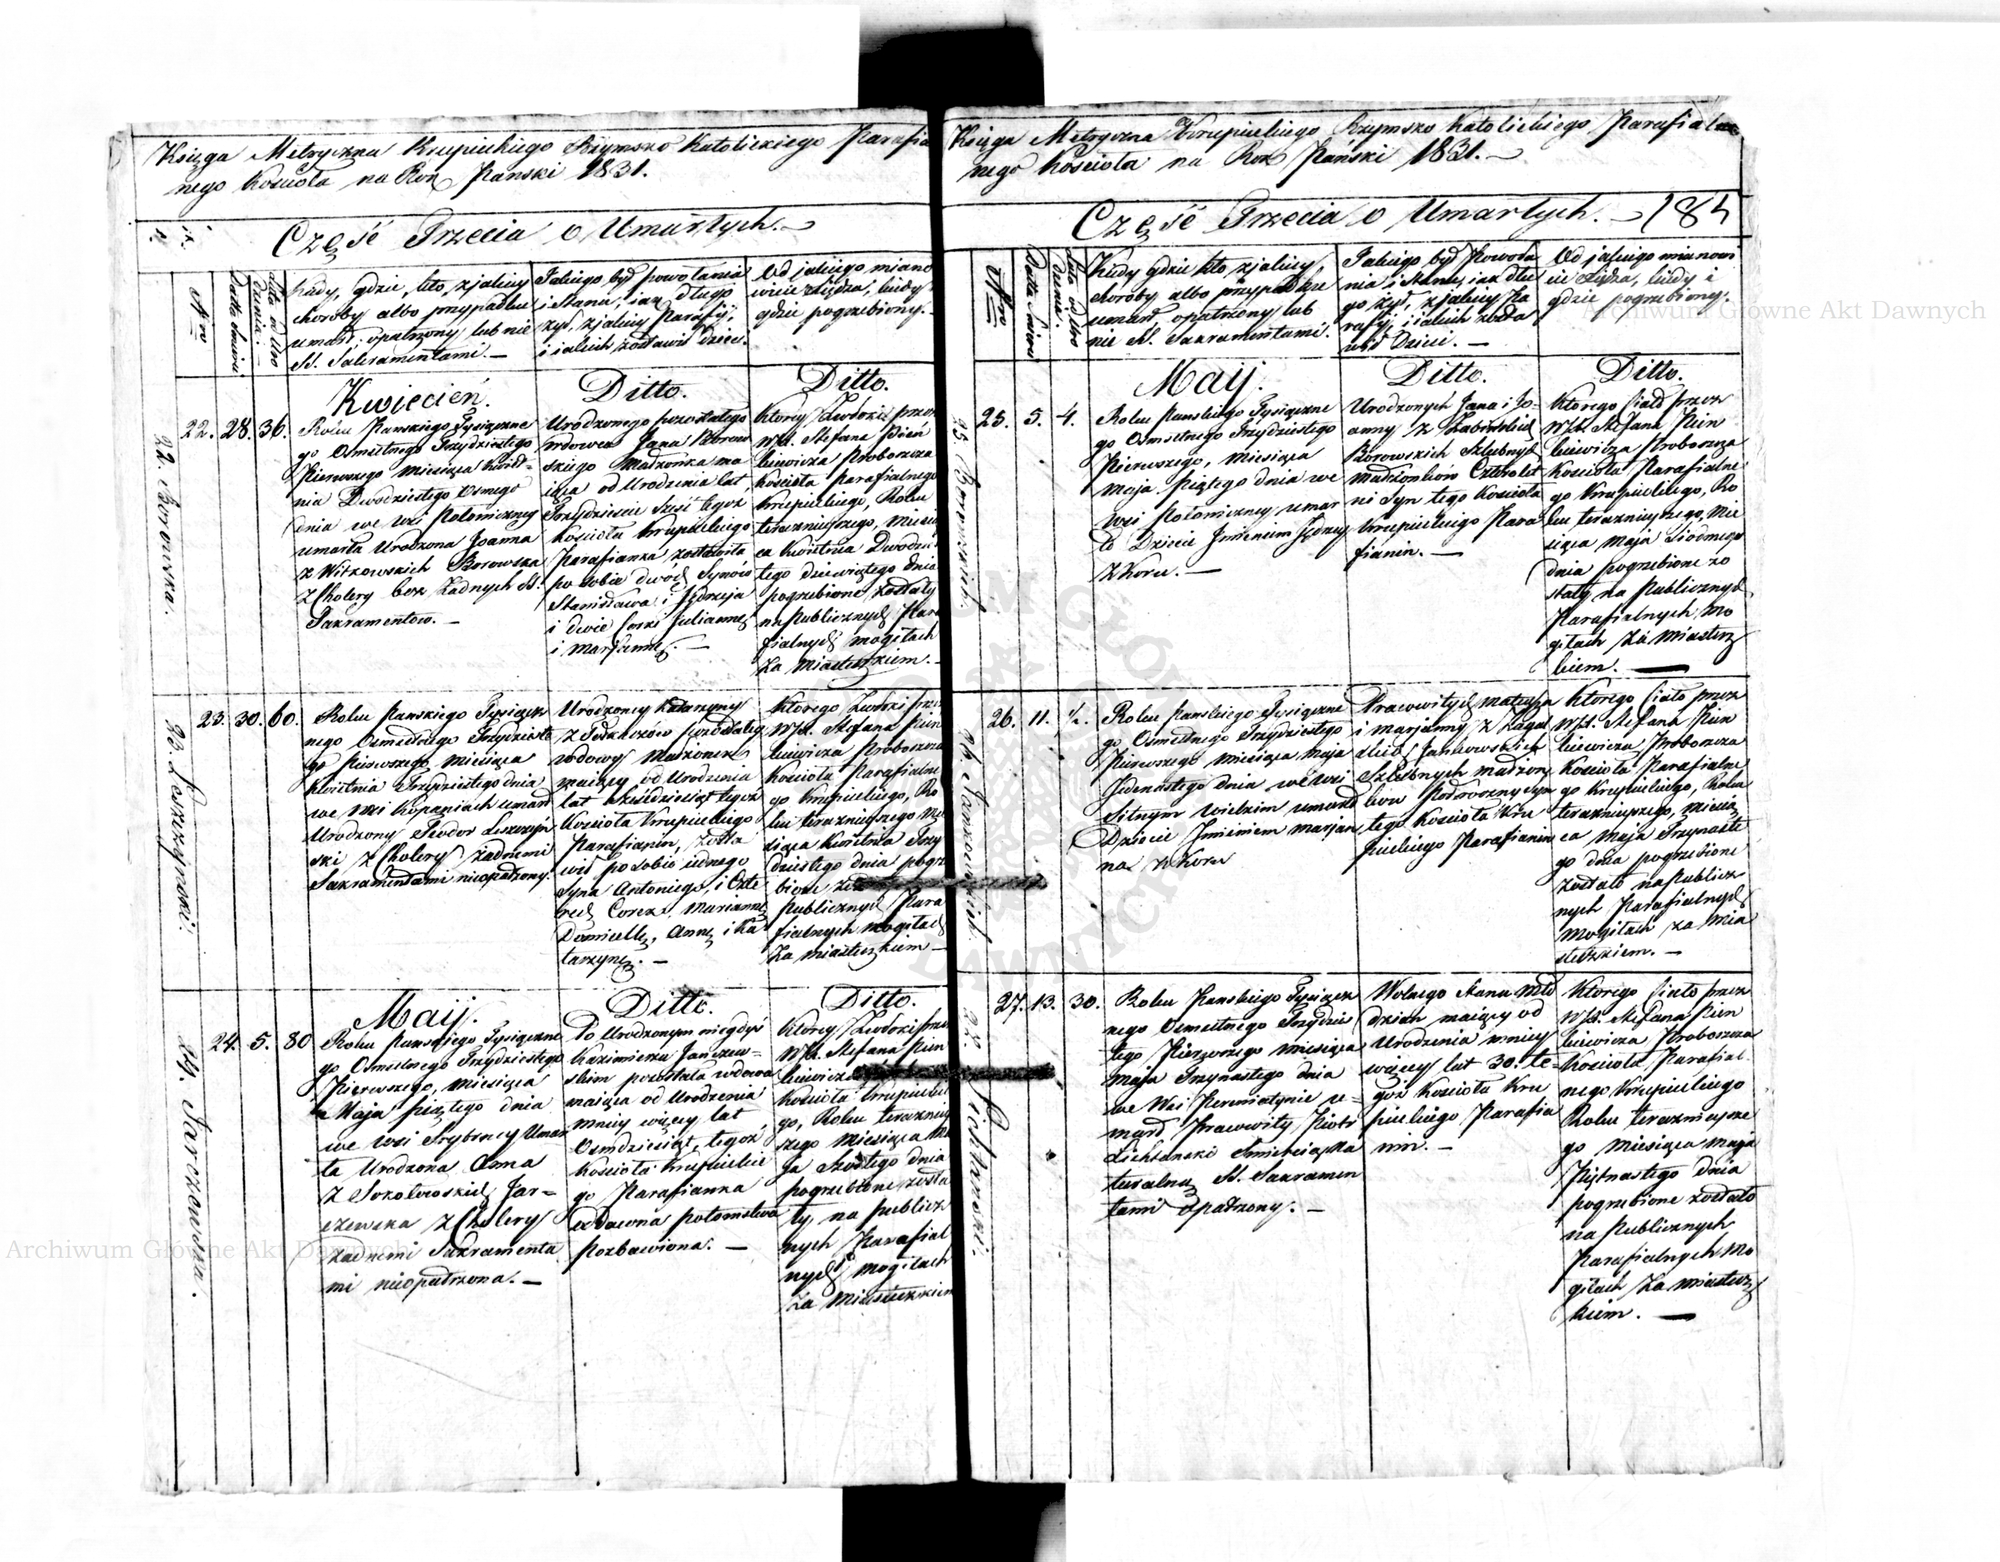 Księga Metryczna Krupieckiego Rzymsko Katolickiego Parafial
nego Kościoła na Rok Pański 1831.
Część Trzecia o Umarłych.
Nro
Data śmierci.
Kiedy, gdzie, kto, z jakiey
choroby albo przypadku
umarł; opatrzony lub nie
SS. Sakramentami. —
Jakiego był powołania
i stanu, jak długo
żył, z jakiey Parafij,
i jakich zostawił dzieci.
Od jakiego miano
wicie Xiędza, kiedy i
gdzie pogrzebiony. —
Kwiecień.
Ditto.
Ditto.
22. 28. 36.
22. Borowska.
Roku Pańskiego Tysiączne
go Osmsetnego Trzydziestego
Pierwszego miesiąca Kwiet=
nia Dwodziestego Osmego
dnia we wsi Potomiczney
umarła Urodzona Joanna
z Witkowskich Borowska
z Cholery bez żadnych SS.
Sakramentow. —
Urodzonego pozostałego
wdowca Jana Borow
skiego Małżonka ma
iąca od Urodzenia lat
Trzydzieście Sześć tegoż
Kościoła Krupieckiego
Parafianka zostawiła
po sobie dwóch Synów
Stanisława i Jędrzeja
i dwie Corki Juliannę
i Marjannę. —
Ktorey Zwłoki przez
WJX. Stefana Pień
kiewicza Proboszcza
Kościoła Parafialnego
Krupieckiego, Roku
teraznieyszego, miesią
ca Kwietnia Dwodzies
tego dziewiątego dnia
pogrzebione zostały
na Publicznych Para
fialnych mogiłach
za Miasteczkiem. —
23. 30. 60.
23. Leszczynski.
Roku Pańskiego Tysiącz
nego Osmsetnego Trzydzieste
go Pierwszego miesiąca
Kwietnia Trzydziestego dnia
we wsi Kopaniach umarł
Urodzony Teodor Leszczyń
ski z Cholery żadnemi
Sakramentami nieopatrzony.
Urodzoney Katarzyny
wdowy Małżonek
maiący od Urodzenia
lat Sześćdziesiąt tegoż
Kościoła Krupieckiego
Parafianin, zosta
wił po sobie iednego
Syna Antoniego, i Czte
rech Corek, Mariannę
Domicellę, Annę i Ka
tarzynę. —
Ktorego Zwłoki przez
WJX. Stefana Pień
kiewicza Proboszcza
Kościoła Parafialne
go Krupieckiego, Ro
ku teraznieyszego Mie
siąca Kwietnia Trzy
dziestego dnia pogrze
bione
Publicznych Para
fialnych mogiłach
za miasteczkiem —
Maij.
Ditto.
Ditto.
24. 5. 80
24. Jarczewska.
Roku Pańskiego Tysiączne
go Osmsetnego Trzydziestego
Pierwszego, miesiąca
Maja piątego dnia
we wsi Srybrney Umar
ła Urodzona Anna
z Sokołowskich Jar=
czewska z Cholery
żadnemi Sakramenta
mi nieopatrzona. —
Po Urodzonym niegdyś
Kazimierzu Jarczew=
skim pozostała wdowa
maiąca od Urodzenia
mniey więcey lat
Osmdziesiąt, tegoż
Kościoła Krupieckie
go Parafianka
oddawna potomstwa
pozbawiona. —
Ktorey Zwłoki przez
WJX. Stefana Pień
kiewicza
Kościoła Krupieckie
go, Roku terazniey
szego Miesiąca Ma
ja Szóstego dnia
pogrzebione zosta
ły, na publicz
nych Parafial
nych mogiłach
za Miasteczkiem
Księga Metryczna Krupieckiego Rzymsko Katolickiego Parafial
nego Kościoła na Rok Pański 1831. —
Część Trzecia o Umarłych. —
Nro
Data śmierci
Kiedy gdzie kto, z jakiey
choroby albo przypadku
umarł opatrzony lub
nie SS. Sakramentami.
Jakiego był Powoła
nia i stanu, jak dłu
go żył, z jakiey Pa
rafij, i jakich zosta
wił Dzieci. —
Od jakiego mianowi
cie Xiędza, kiedy i
gdzie pogrzebiony.
Maij.
Ditto.
Ditto.
25. 5. 4.
Roku Pańskiego Tysiączne
go Osmsetnego Trzydziestego
Pierwszego, miesiąca
Maja piątego dnia we
Wsi Potomiczney umar
ło Dziecie Jmieniem Jędrzey
z Koru. —
Urodzonych Jana i Jo=
anny z
Borowskich Szlubnych
małżonków Czterolet
ni Syn tego Kościoła
Krupieckiego Para
fianin. —
Ktorego Ciało przez
WJX. Stefana Pień
kiewicza Proboszcza
Kościoła Parafialne
go Krupieckiego, Ro
ku teraznieyszego, Mie
siąca Maja Siódmego
dnia pogrzebione zo
stały na Publicznych
Parafialnych Mo
giłach za Miastecz
kiem. —
26. 11. ½.
26. Jankowskich.
Roku Pańskiego Tysiączne
go Osmsetnego Trzydziestego
Pierwszego miesiąca Maja
Jedenastego dnia we Wsi
Sitnym Wielkim umarło
Dziecie Jmieniem Marjan
na z Koru
Pracowitych Mateusza
i Marjanny z
Jankowskich
Szlubnych małżon
ków Podroczny Syn
tego Kościoła Kru
pieckiego Parafianin
Ktorego Ciało przez
WJX. Stefana Pień
kiewicza Proboszcza
Kościoła Parafialne
go Krupieckiego, Roku
teraznieyszego, miesią
ca Maja Trzynaste
go dnia pogrzebione
zostało na Publicz
nych Parafialnych
Mogiłach za Mia
steczkiem. —
27. 13. 30.
Roku Pańskiego Tysiącz
nego Osmsetnego Trzydzies
tego Pierwszego miesiąca
Maja Trzynastego dnia
we Wsi Piermiatynie u=
marł Pracowity Piotr
Lichtanski Smiercią na
turalną SS. Sakramen
tami opatrzony. —
Wolnego stanu Mło
dzian maiący od
Urodzenia mniey
więcey lat 30. te=
goż Kościoła Kru
pieckiego Parafia
nin. —
Ktorego Ciało przez
WJX. Stefana Pień
kiewicza Proboszcza
Kościoła Parafial
nego Krupieckiego
Roku teraznieysze
go miesiąca Maja
Piętnastego dnia
pogrzebione zostało
na Publicznych
Parafialnych Mo
giłach za Miastecz
kiem. —
Archiwum Główne Akt Dawnych
Archiwum Główne Akt Dawnych